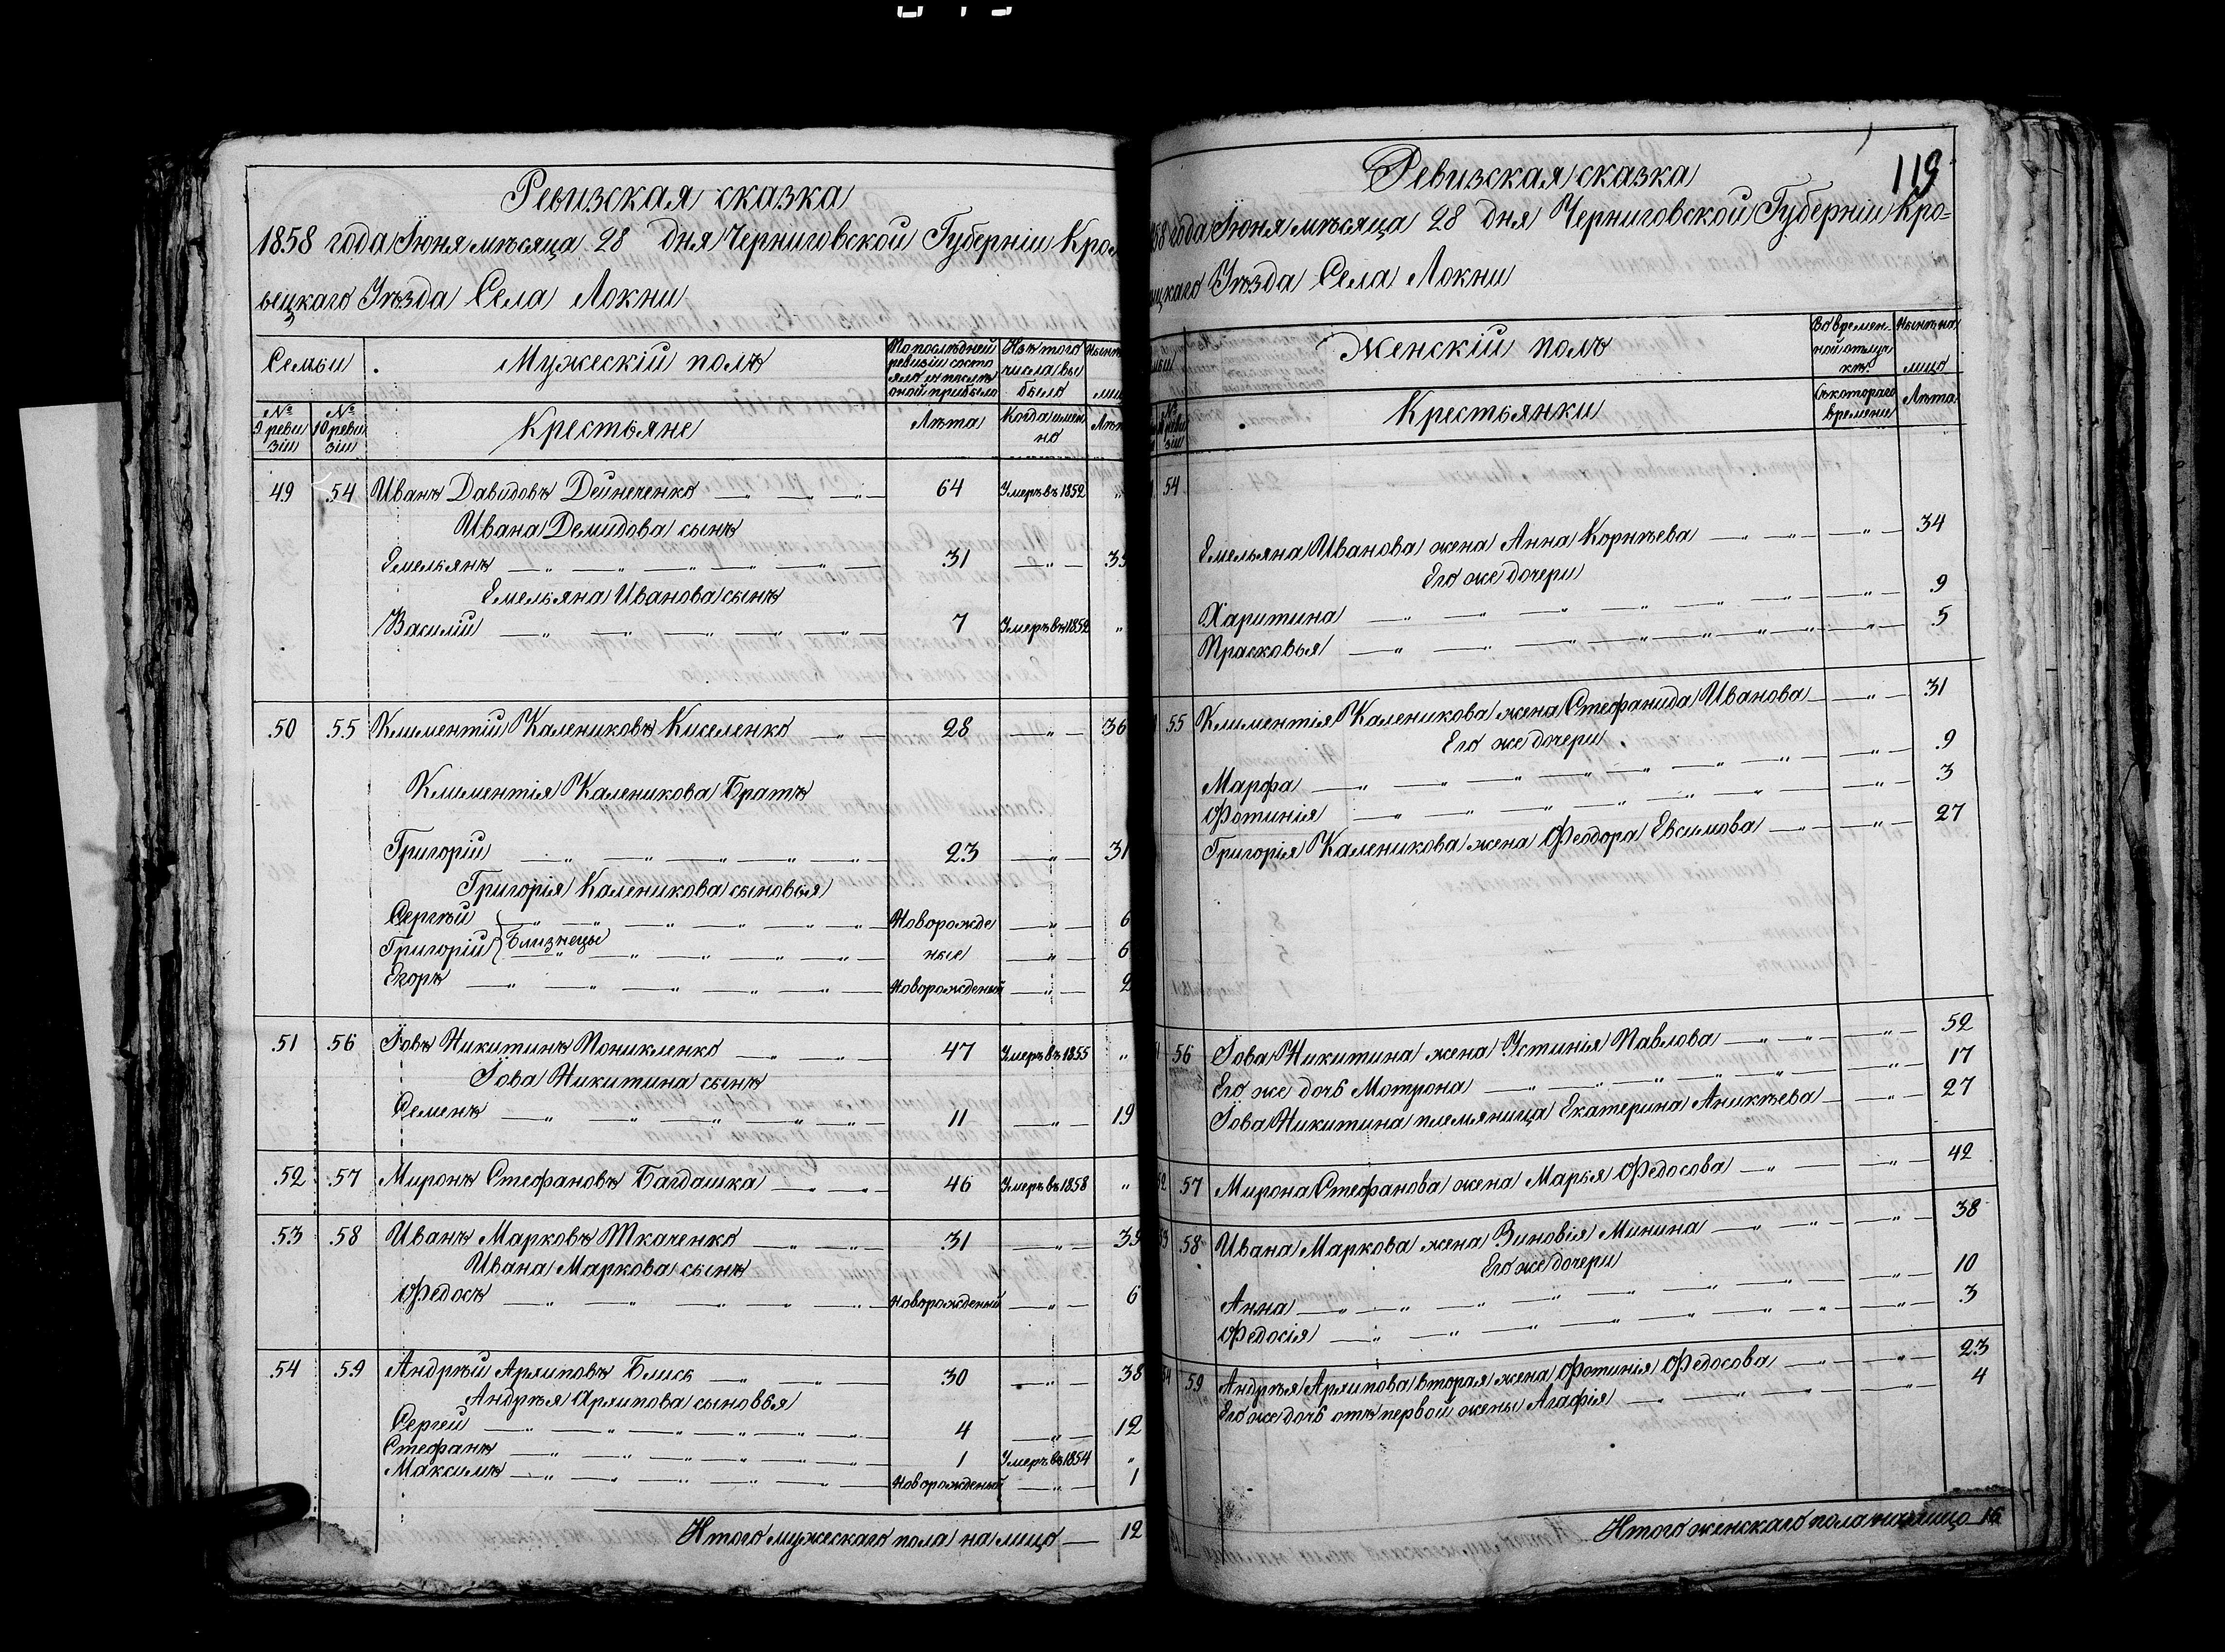 Ревизская сказка
1858 года Іюня мѣсяца 28 дня Черниговской Губерніи Крол
вецкаго Уѣзда Села Локни
Семьи Мужескій полъ По послѣдней ревизіи состояло и послѣ оной прибыло Изъ того числа выбыло
№ 9 ревизіи № 10 ревизіи Крестьяне Лѣта Когда именно
49 54 Иванъ Давидовъ Дейнеченко 64 Умеръ въ 1852 "
Ивана Демидова сынъ
Емельянъ 31 " 39
Емельяна Иванова сынъ
Василій 7 Умеръ въ 1852 "
50 55 Климентій Калениковъ Киселенко 28 " 36
Климентія Каленикова Братъ
Григорій 23 " 31
Григорія Каленикова сыновья
Сергѣй Новорожде " 6
Григорій } Близнецы ные " 6
Егоръ Новорожденый " 2
51 56 Іовъ Никитинъ Поникленко 47 Умеръ въ 1855 "
Іова Никитина сынъ
Семенъ 11 " 19
52 57 Миронъ Стефановъ Багдашка 46 Умеръ въ 1858 "
53 58 Иванъ Марковъ Ткаченко 31 " 39
Ивана Маркова сынъ
Федосъ Новорожденый " 6
54 59 Андрѣй Архиповъ Блисъ 30 " 38
Андрѣя Архипова сыновья
Сергей 4 " 12
Стефанъ 1 Умеръ въ 1854 "
Максимъ Новорожденый " 1
Итого мужескаго пола на лицо 12
119
Ревизская сказка
858 года Іюня мѣсяца 28 дня Черниговской Губерніи Кро=
вецкаго Уѣзда Села Локни
Женскій полъ Во временной отлучкѣ Нынѣ на лицо
Крестьянки Съ котораго времени Лѣта
54
Емельяна Иванова жена Анна Корнѣева " 34
Его же дочери
Харитина " 9
Прасковья " 5
55 Климентія Каленикова жена Стефанида Иванова " 31
Его же дочери
Марфа " 9
Фотинія " 3
Григорія Каленикова жена Феодора Евсимова " 27
56 Іова Никитина жена Устинія Павлова " 52
Его же дочь Мотрона " 17
Іова Никитина племяница Екатерина Аникѣева " 27
52 57 Мирона Стефанова жена Марья Федосова " 42
53 58 Ивана Маркова жена Зиновія Минина " 38
Его же дочери
Анна " 10
Федосія " 3
54 59 Андрѣя Архипова вторая жена Фотинія Федосова " 23
Его же дочь отъ первой жены Агафія " 4
Итого женскаго пола на лицо 16